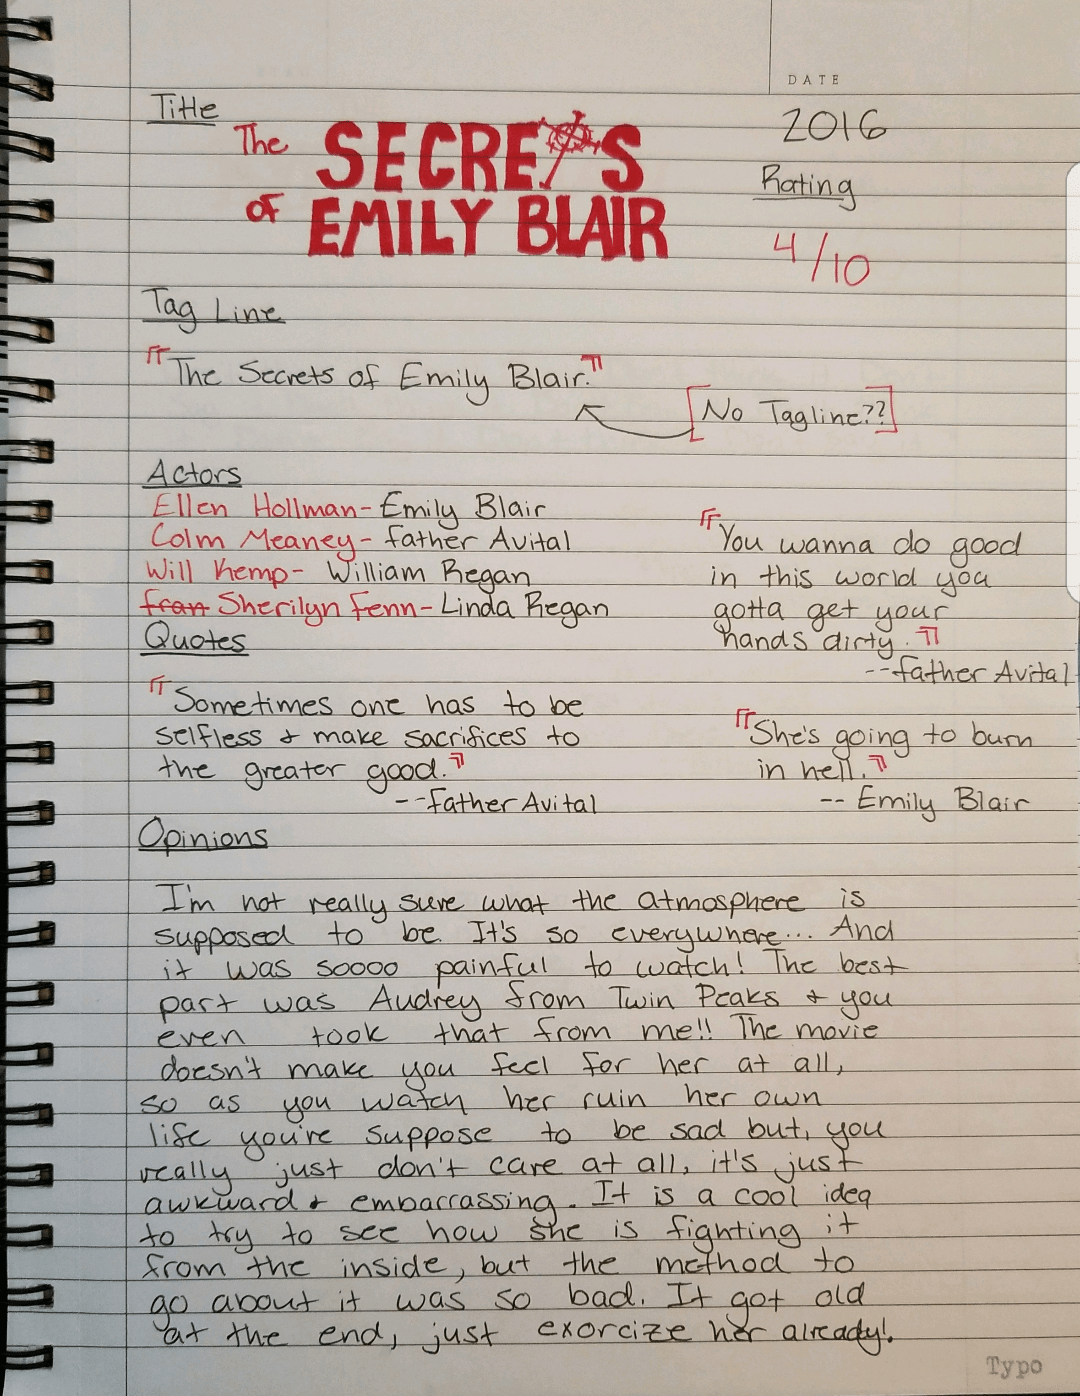 DATE
Title
The SECRETS
of EMILY BLAIR
2016
Rating
4/10
Tag Line
"The Secrets of Emily Blair."
[No Tagline??]
Actors
Ellen Hollman- Emily Blair
Colm Meaney- Father Avital
Will Kemp- William Regan
Fran Sherilyn Fenn- Linda Regan
"You wanna do good
in this world you
gotta get your
hands dirty."
--Father Avital
Quotes
"Sometimes one has to be
selfless & make sacrifices to
the greater good."
--Father Avital
"She's going to burn
in hell."
-- Emily Blair
Opinions
I'm not really sure what the atmosphere is
supposed to be. It's so everywhere... And
it was soooo painful to watch! The best
part was Audrey from Twin Peaks & you
even took that from me!! The movie
doesn't make you feel for her at all,
so as you watch her ruin her own
life you're suppose to be sad but, you
really just don't care at all, it's just
awkward & embarrassing. It is a cool idea
to try to see how she is fighting it
from the inside, but the method to
go about it was so bad. It got old
at the end, just exorcize her already!.
Typo